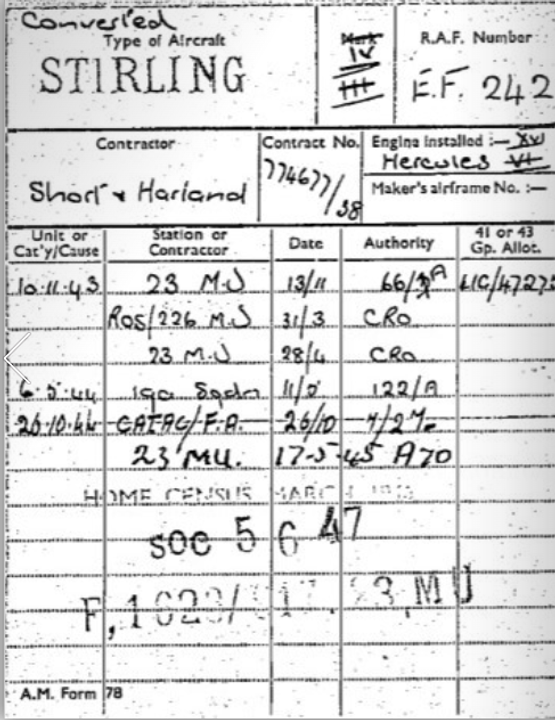 Converted
Type of Aircraft
STIRLING
Mark
IV
III
R.A.F. Number
E.F. 242
Contractor
Short & Harland
Contract No.
774677/38
Engine Installed :— XVI
Hercules VI
Maker's airframe No. :—
Unit or Cat'y/Cause Station or Contractor Date Authority 41 or 43 Gp. Allot.
10.11.43 23 M.U 13/11 66/ A LIC/4727
ROS/226 M.U 31/3 CRO
23 M.U 28/4 CRO
6.5.44 Sqdn 122/A
20.10.44 CATAC/F.A. 26/10
23 MU. 17-5-45 A70
HOME CENSUS MARCH
SOC 5 6 47
23, MU
A.M. Form 78